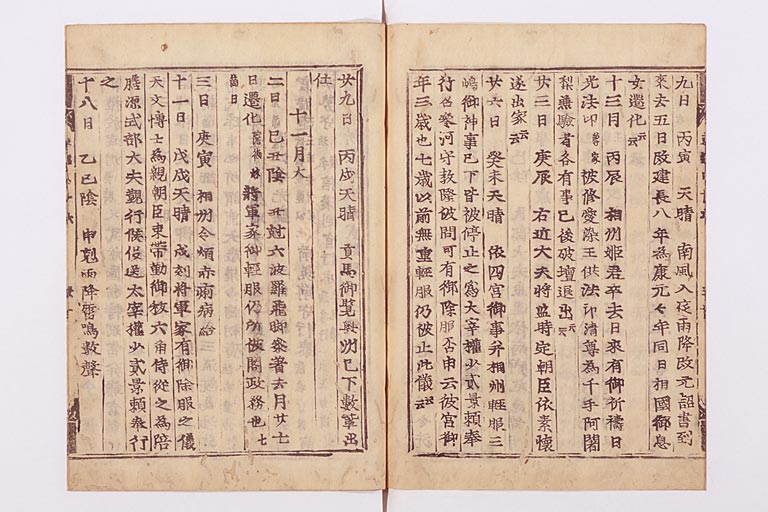 九日 丙寅 天晴 南風入夜雨降改元詔書到
來去五日改建長八年為康元々年同日相國御息
女還化云云
十三日 丙辰 相州姫君卒去日來有御祈禱日
光法印尊家被修愛染王供法印清尊為千手阿闍
梨應驗者各有事已後破壇退出云云
廿三日 庚辰 右近大夫將監時定朝臣依素懷
遂出家云云
廿六日 癸未天晴 依四宮御事并相州輕服三
嶋御神事已下皆被停止之為大宰權少貳景頼奉
行召參河守教隆被問可有御除服否由云彼宮御
年三歳也七歳以前無重輕服仍被止此儀云云
廿九日 丙戌天晴 貢馬御覽奥州已下數輩出
仕
十一月大
二日 己丑陰 六波羅飛脚參著去月廿七
日 還化 將軍家御輕服仍被閣政務也七
箇日
三日 庚寅 相州令煩赤痢病給
十一日 戊戌天晴 戌刻將軍家有御除服之儀
天文博士為親朝臣束帶勤御祓六角侍從之為陪
膳 式部大夫 行候役送太宰權少貳景頼奉行
之
十八日 乙巳陰 申剋雨降雷鳴數聲